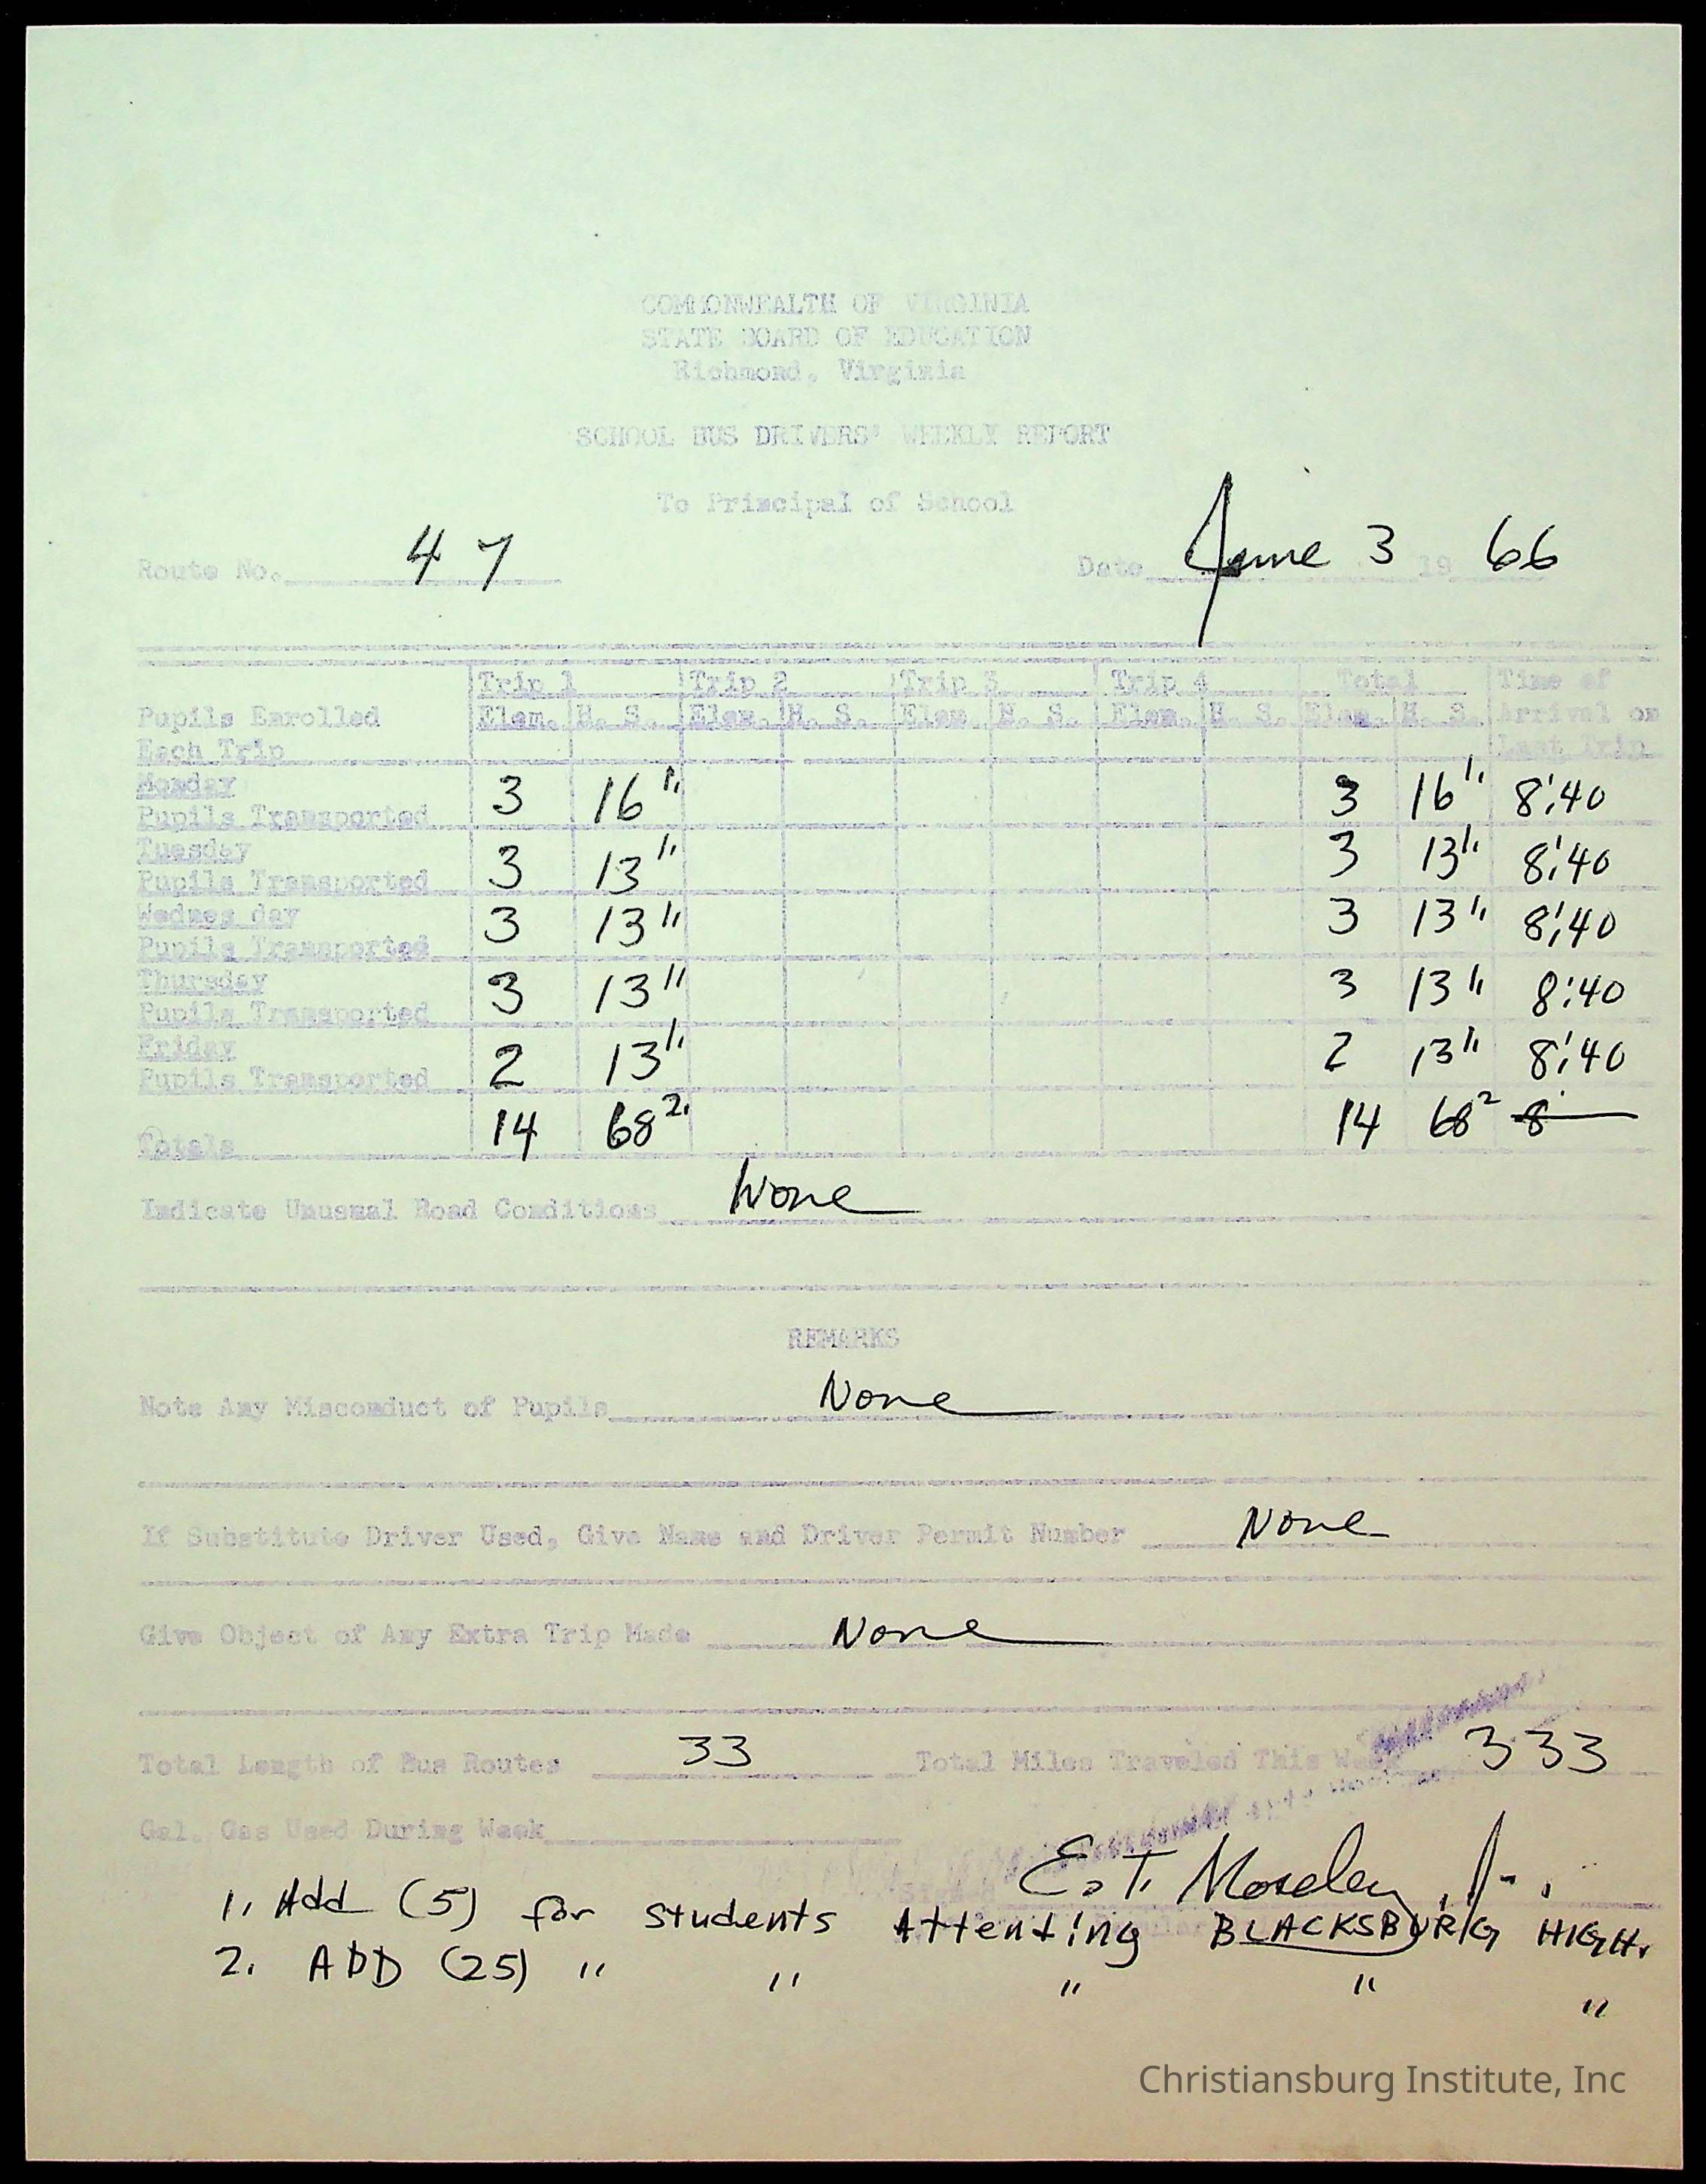 COMMONWEALTH OF VIRGINIA
STATE BOARD OF EDUCATION
Richmond, Virginia
SCHOOL BUS DRIVERS' WEEKLY REPORT
To Principal of School
Route No. 47 Date June 3 19 66
Trip 1 Trip 2 Trip 3 Trip 4 Total Time of
Pupils Enrolled Elem. H. S. Elem. H. S. Elem. H. S. Elem. H. S. Elem. H. S. Arrival on
Each Trip Last Trip
Monday
Pupils Transported 3 16 1. 3 16 1. 8:40
Tuesday
Pupils Transported 3 13 1. 3 13 1. 8:40
Wednesday
Pupils Transported 3 13 1. 3 13 1. 8:40
Thursday
Pupils Transported 3 13 1. 3 13 1. 8:40
Friday
Pupils Transported 2 13 1. 2 13 1. 8:40
Totals 14 68 2. 14 68 2 8
Indicate Unusual Road Conditions None
REMARKS
Note Any Misconduct of Pupils None
If Substitute Driver Used, Give Name and Driver Permit Number None
Give Object of Any Extra Trip Made None
Total Length of Bus Routes 33 Total Miles Traveled This Week 333
Gal. Gas Used During Week
Signed E. T. Moseley, Jr.
1. Add (5) for students Attending BLACKSBURG HIGH.
2. ADD (25) " " " " "
Christiansburg Institute, Inc